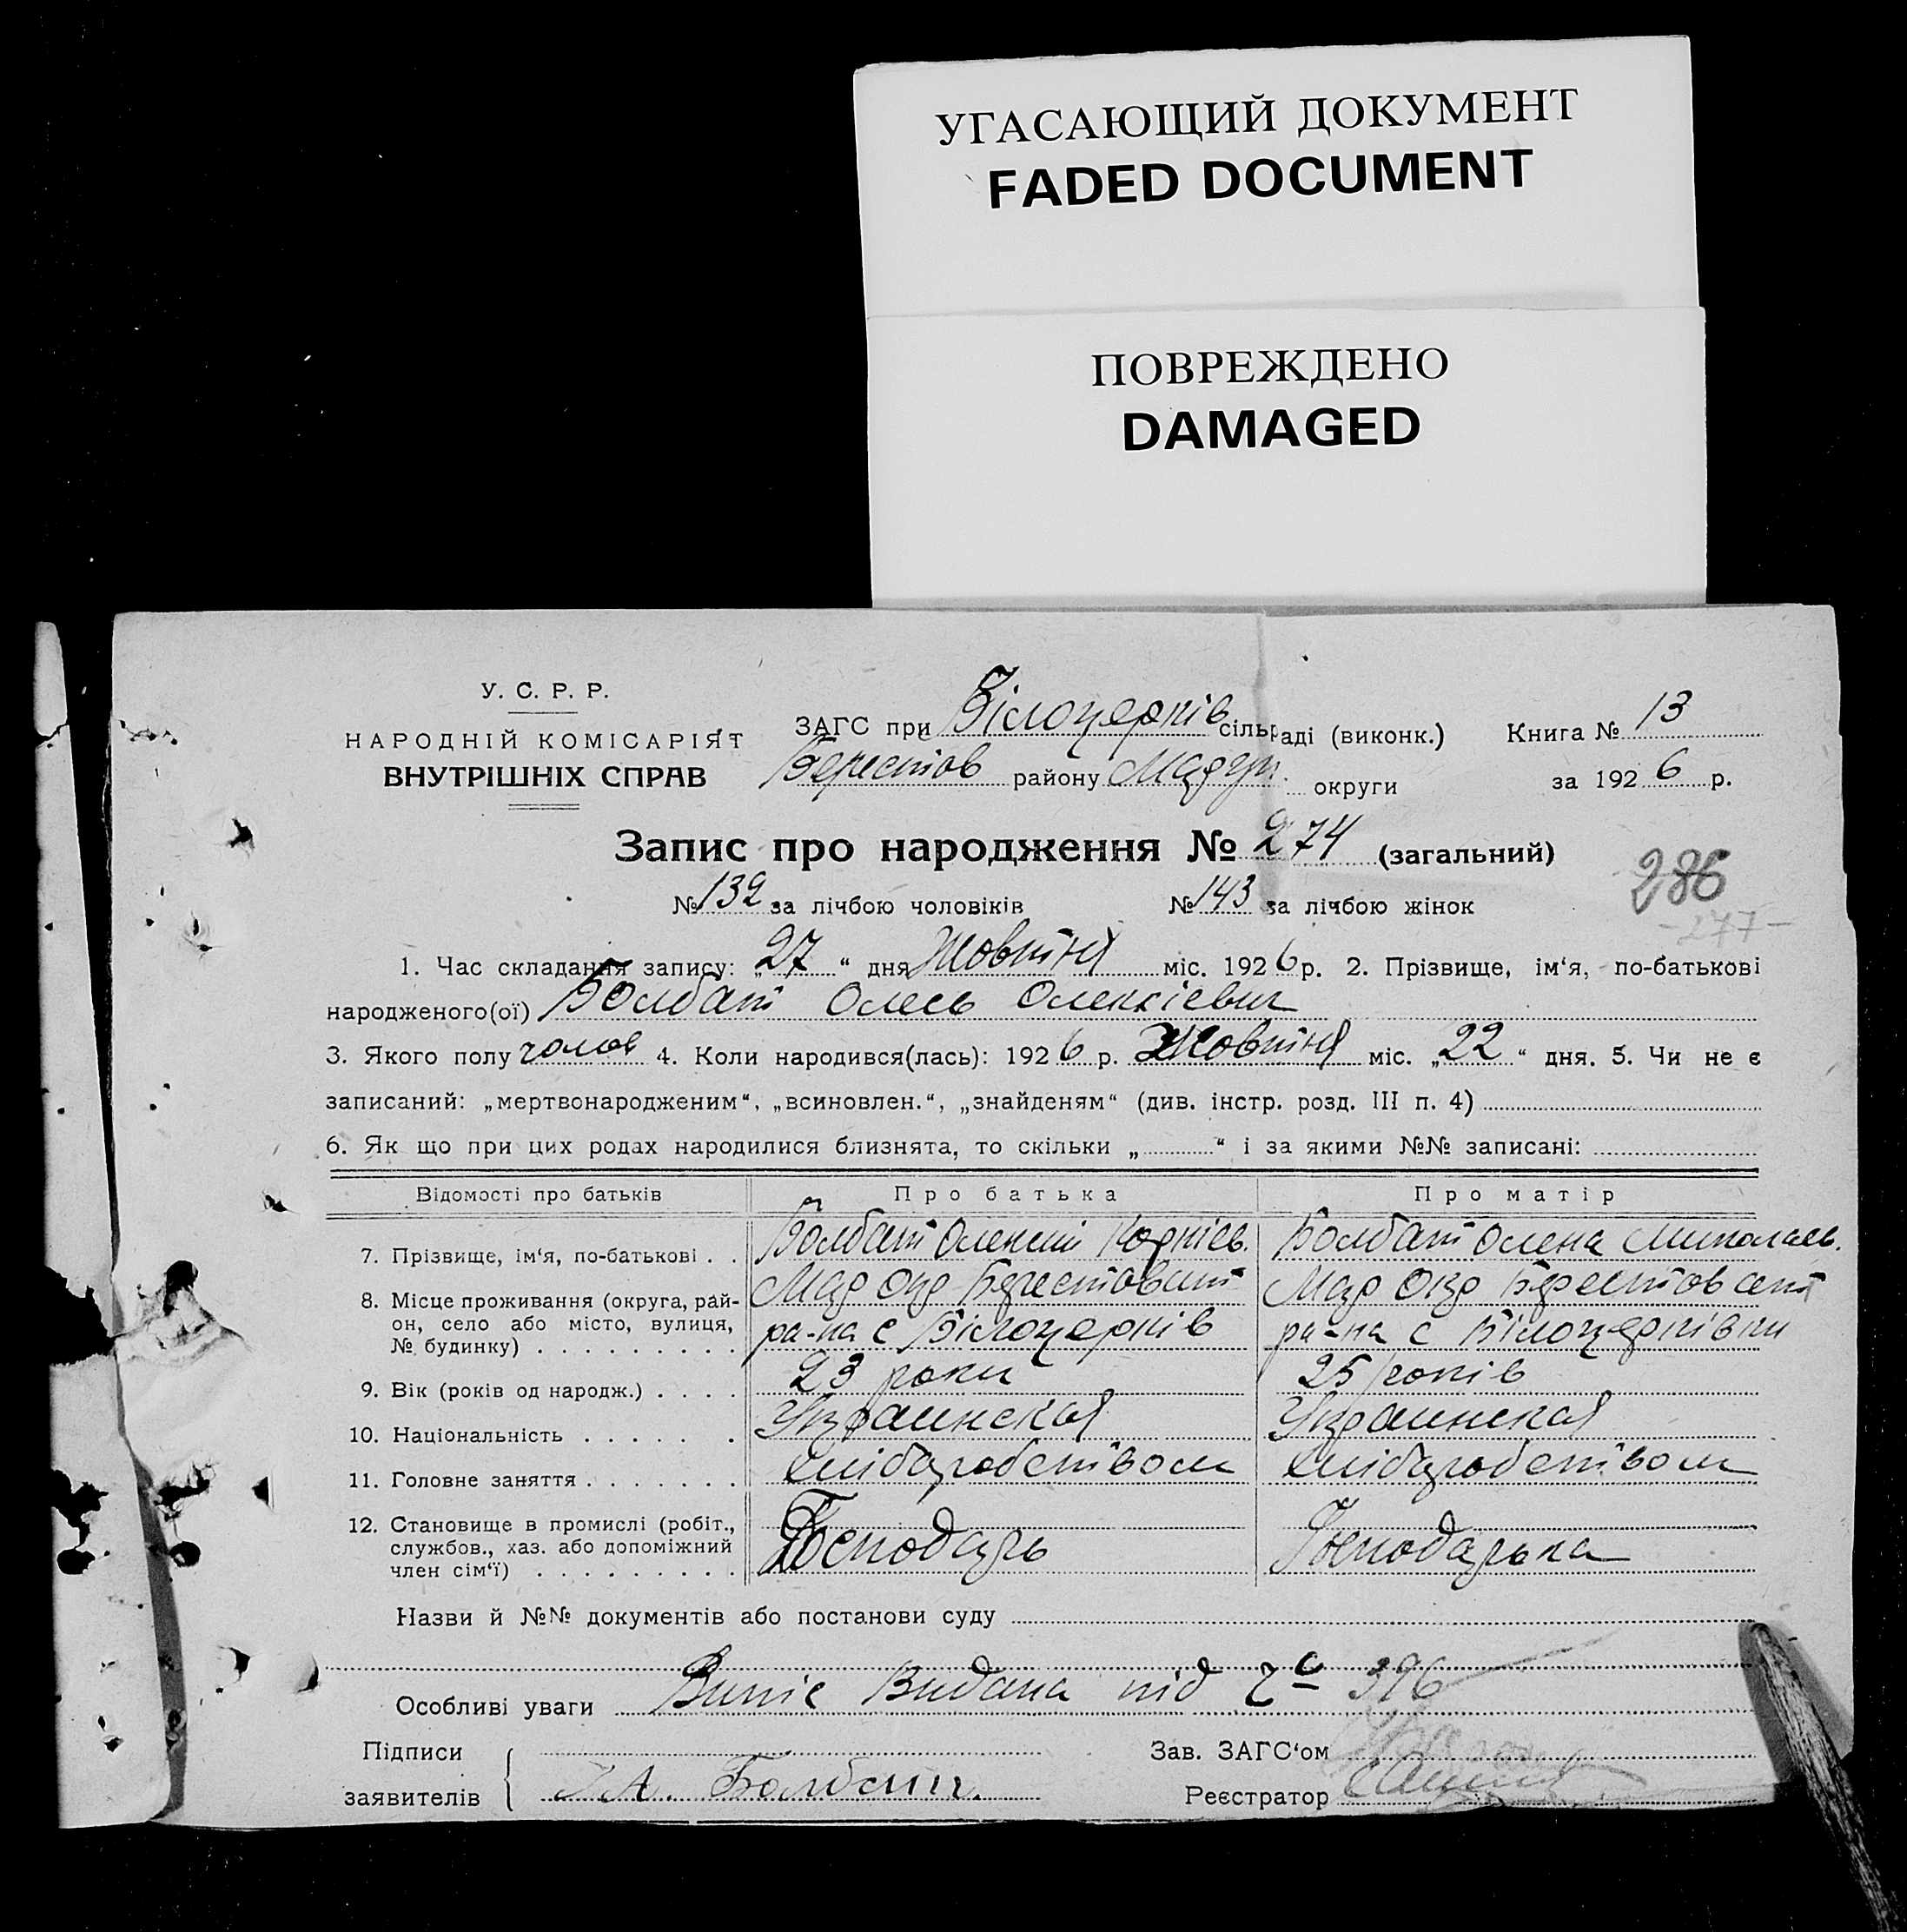 УГАСАЮЩИЙ ДОКУМЕНТ
FADED DOCUMENT
ПОВРЕЖДЕНО
DAMAGED
У. С. Р. Р.
НАРОДНІЙ КОМІСАРІЯТ
ВНУТРІШНІХ СПРАВ
ЗАГС при Білоцерків сільраді (виконк.) Книга № 13
Берестов району Мар округи за 1926 р.
Запис про народження № 274 (загальний)
286
№ 132 за лічбою чоловіків № 143 за лічбою жінок
-277-
1. Час складання запису: „27“ дня Жовтня міс. 1926 р. 2. Прізвище, ім‘я, по-батькові
народженого(ої) Болбат Олесь Олексієвич
3. Якого полу чолов 4. Коли народився(лась): 1926 р. Жовтня міс. „22“ дня. 5. Чи не є
записаний: „мертвонародженим“, „всиновлен.“, „знайденям“ (див. інстр. розд. III п. 4)
6. Як що при цих родах народилися близнята, то скільки „ “ і за якими №№ записані:
Відомості про батьків Про батька Про матір
7. Прізвище, ім‘я, по-батькові . . Болбат Олексій Корнієв. Болбат Олена Миколаєв.
8. Місце проживання (округа, рай- Мар Окр Берестовант Мар Окр Берестовант
он, село або місто, вулиця, ра-на с Білоцерків ра-на с Білоцерківки
№ будинку) . . . . . . . . .
9. Вік (років од народж.) . . . . 23 роки 25 років
10. Національність . . . . . . Украинская Украинская
11. Головне заняття . . . . . . . хлібаробством хлібаробством
12. Становище в промислі (робіт.,
службов., хаз. або допоміжний Господарь Господарька
член сім‘ї) . . . . . . . . .
Назви й №№ документів або постанови суду
Особливі уваги Випіс Видана під 396
Підписи Зав. ЗАГС‘ом
заявителів А. Болбат Реєстратор